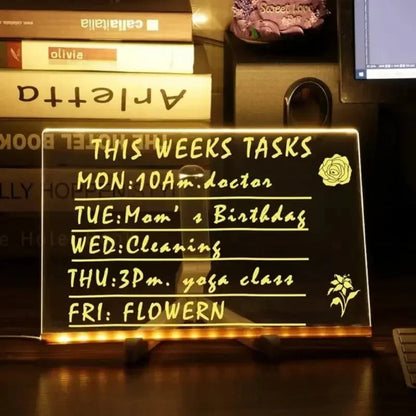 callaitalia
olivia
Arletta
THE HOTEL BOOK
Sweet Love
THIS WEEKS TASKS
MON:10Am.doctor
TUE:Mom's Birthdag
WED:Cleaning
THU:3Pm. yoga class
FRI: FLOWERN